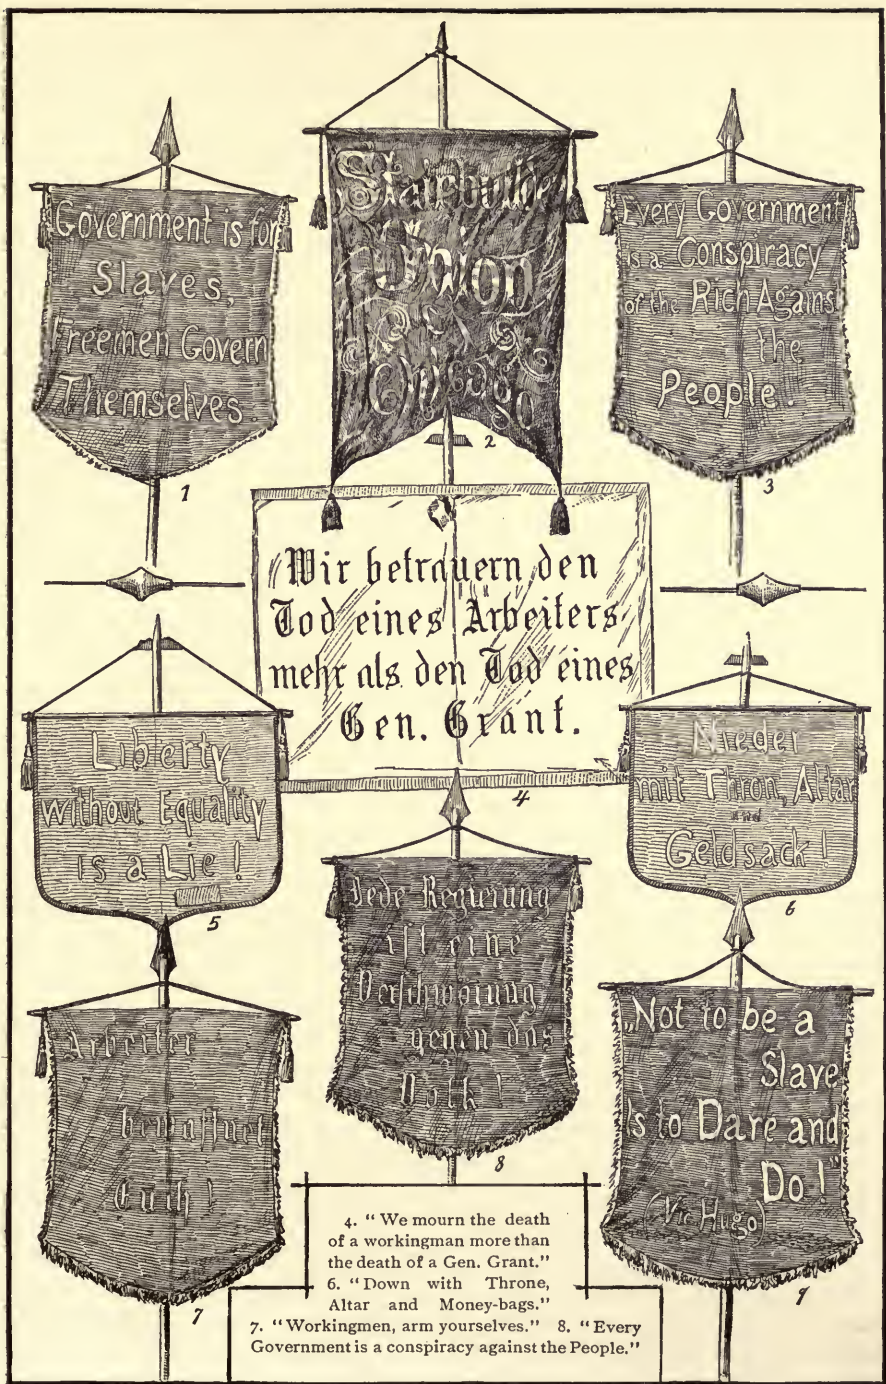 Government is for
Slaves,
Freemen Govern
Themselves.
1
Stairbuilder
Union
2
Every Government
is a Conspiracy
of the Rich Agains
the
People.
3
"Wir betrauern den
Tod eines Arbeiters
mehr als den Tod eines
Gen. Grant.
4
Liberty
without Equality
is a Lie!
5
Nieder
mit Thron, Altar
und
Geldsack!
6
Arbeiter
bewaffnet
Euch!
7
Jede Regierung
iſt eine
Verſchwörung
gegen das
Volk!
8
„Not to be a
Slave
Is to Dare and
Do!"
(Vic Hugo)
9
4. "We mourn the death
of a workingman more than
the death of a Gen. Grant."
6. "Down with Throne,
Altar and Money-bags."
7. "Workingmen, arm yourselves." 8. "Every
Government is a conspiracy against the People."